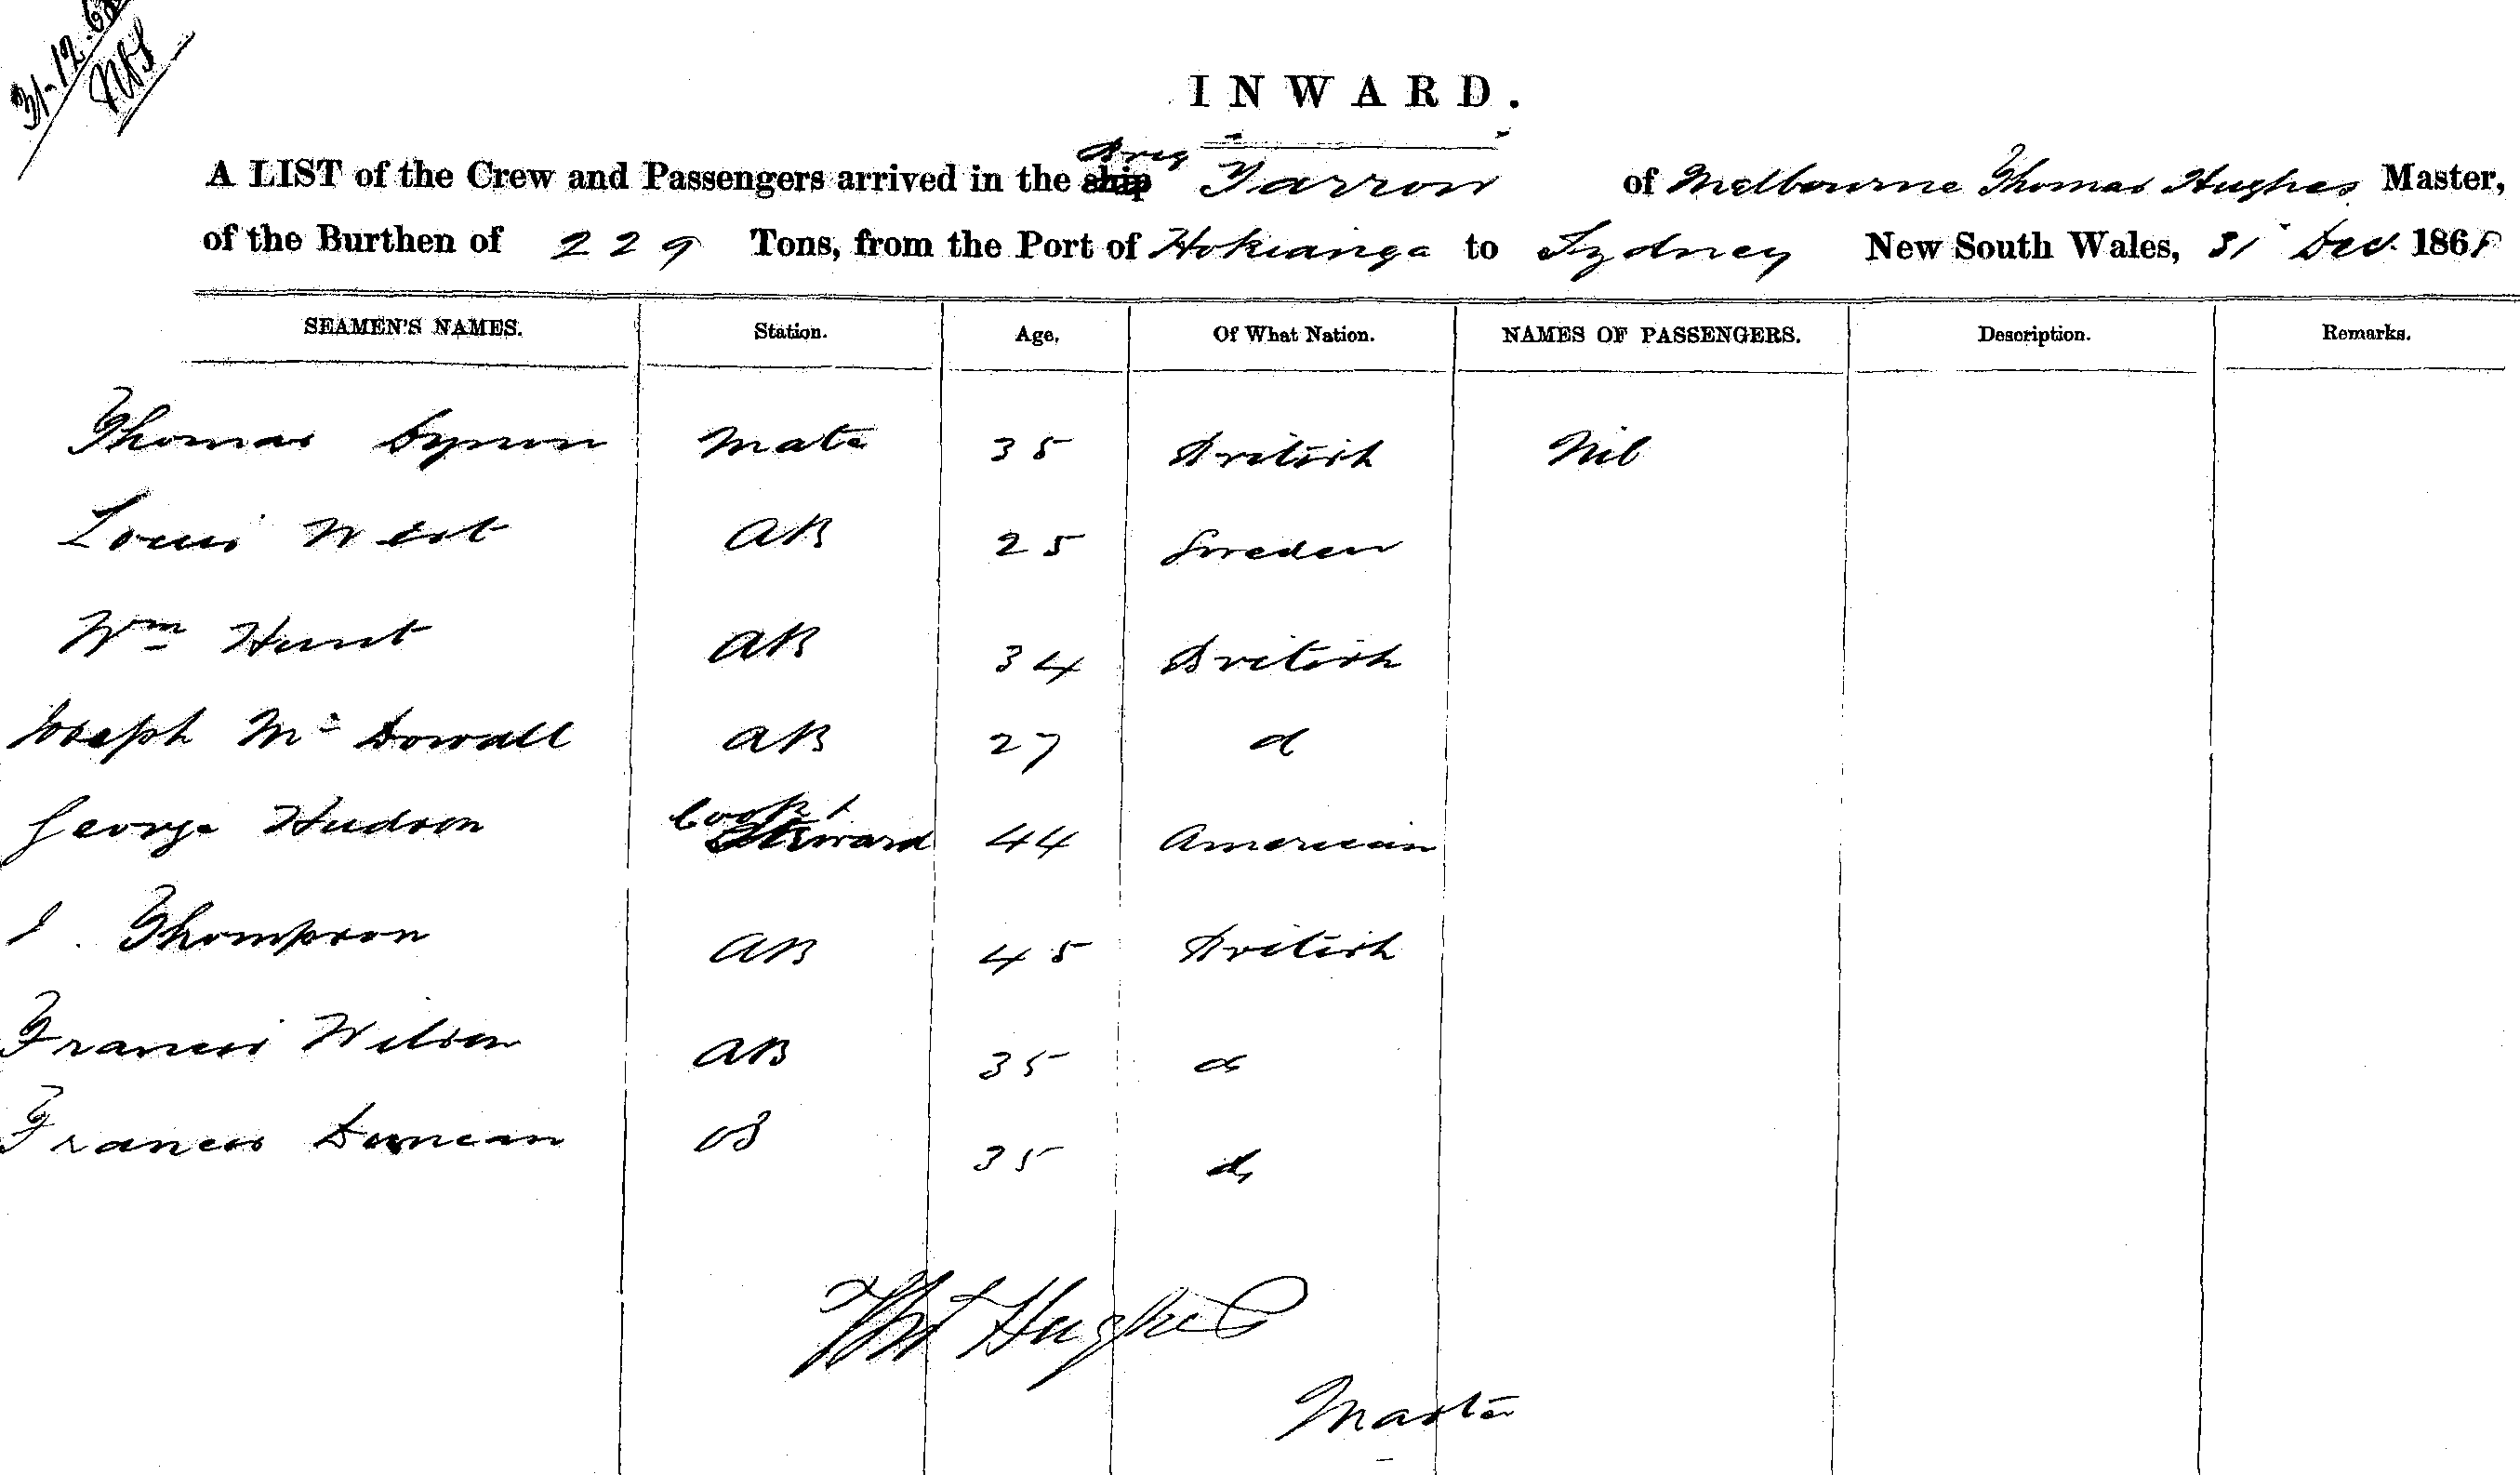 31-12-68
INWARD.
A LIST of the Crew and Passengers arrived in the ship Brig Yarrow of Melbourne Thomas Hughes Master,
of the Burthen of 229 Tons, from the Port of Hokianga to Sydney New South Wales, 31 Dec. 1868
SEAMEN'S NAMES. Station. Age. Of What Nation. NAMES OF PASSENGERS. Description. Remarks.
Thomas Mate 35 British Nil
Louis West AB 25 Sweden
Wm Hunt AB 34 British
Joseph Mc Dowall AB 27 d
George Hudson Cook & Steward 44 American
J. Thompson AB 45 British
Francis Wilson AB 35 do
Francis Duncan OS 35 do
Thos Hughes
Master